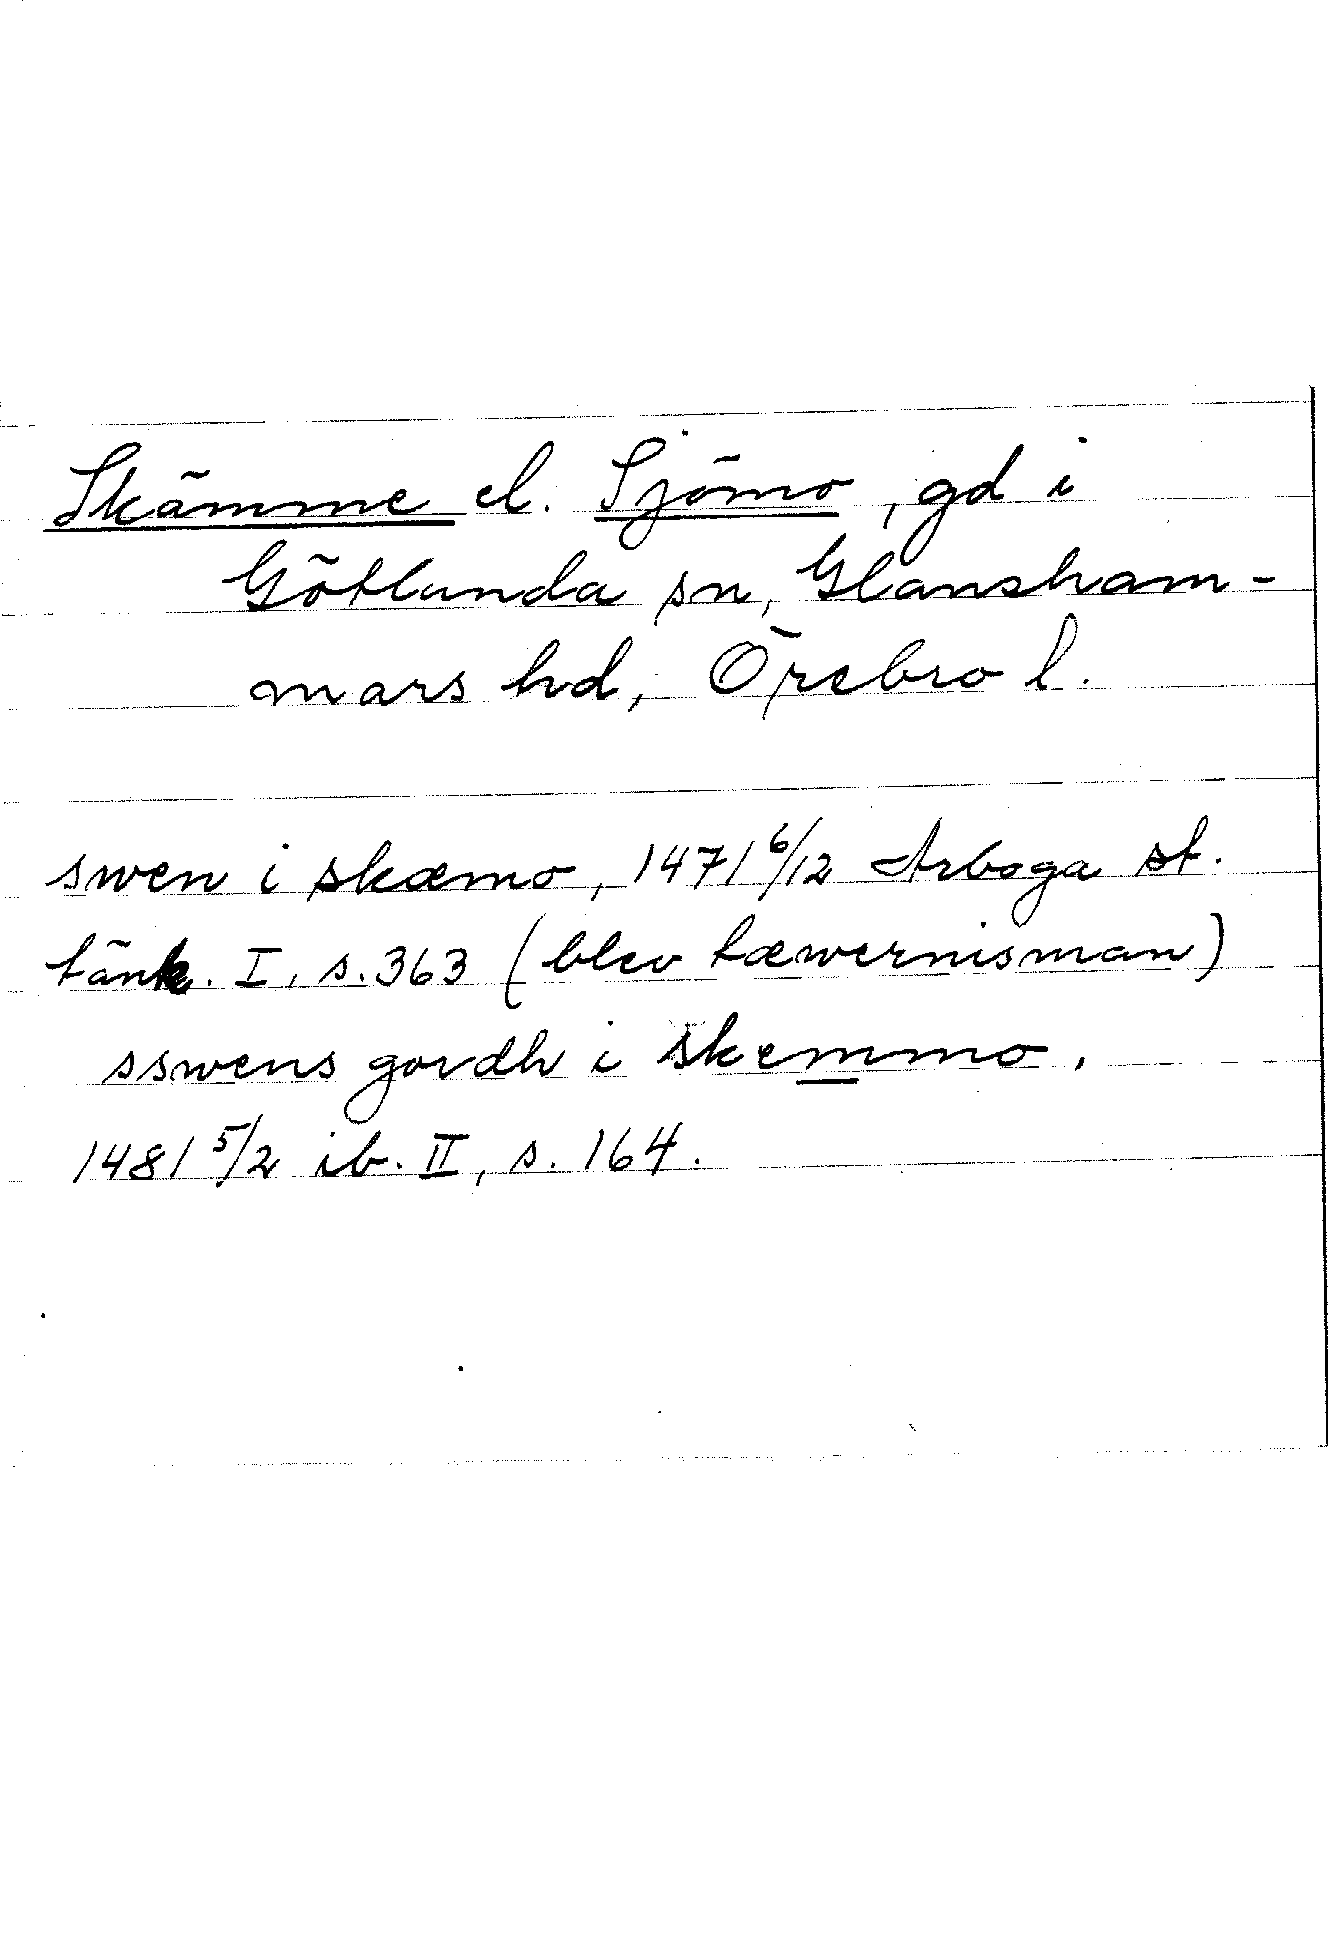 Skämme el. Sjömo, gd i
Götlunda sn, Glansham-
mars hd, Örebro l.
swen i skæmo, 1471 6/12 Arboga st.
tänk. I, s. 363 (blev tæwernisman)
sswens gordh i skemmo,
1481 5/2 ib. II, s. 164.